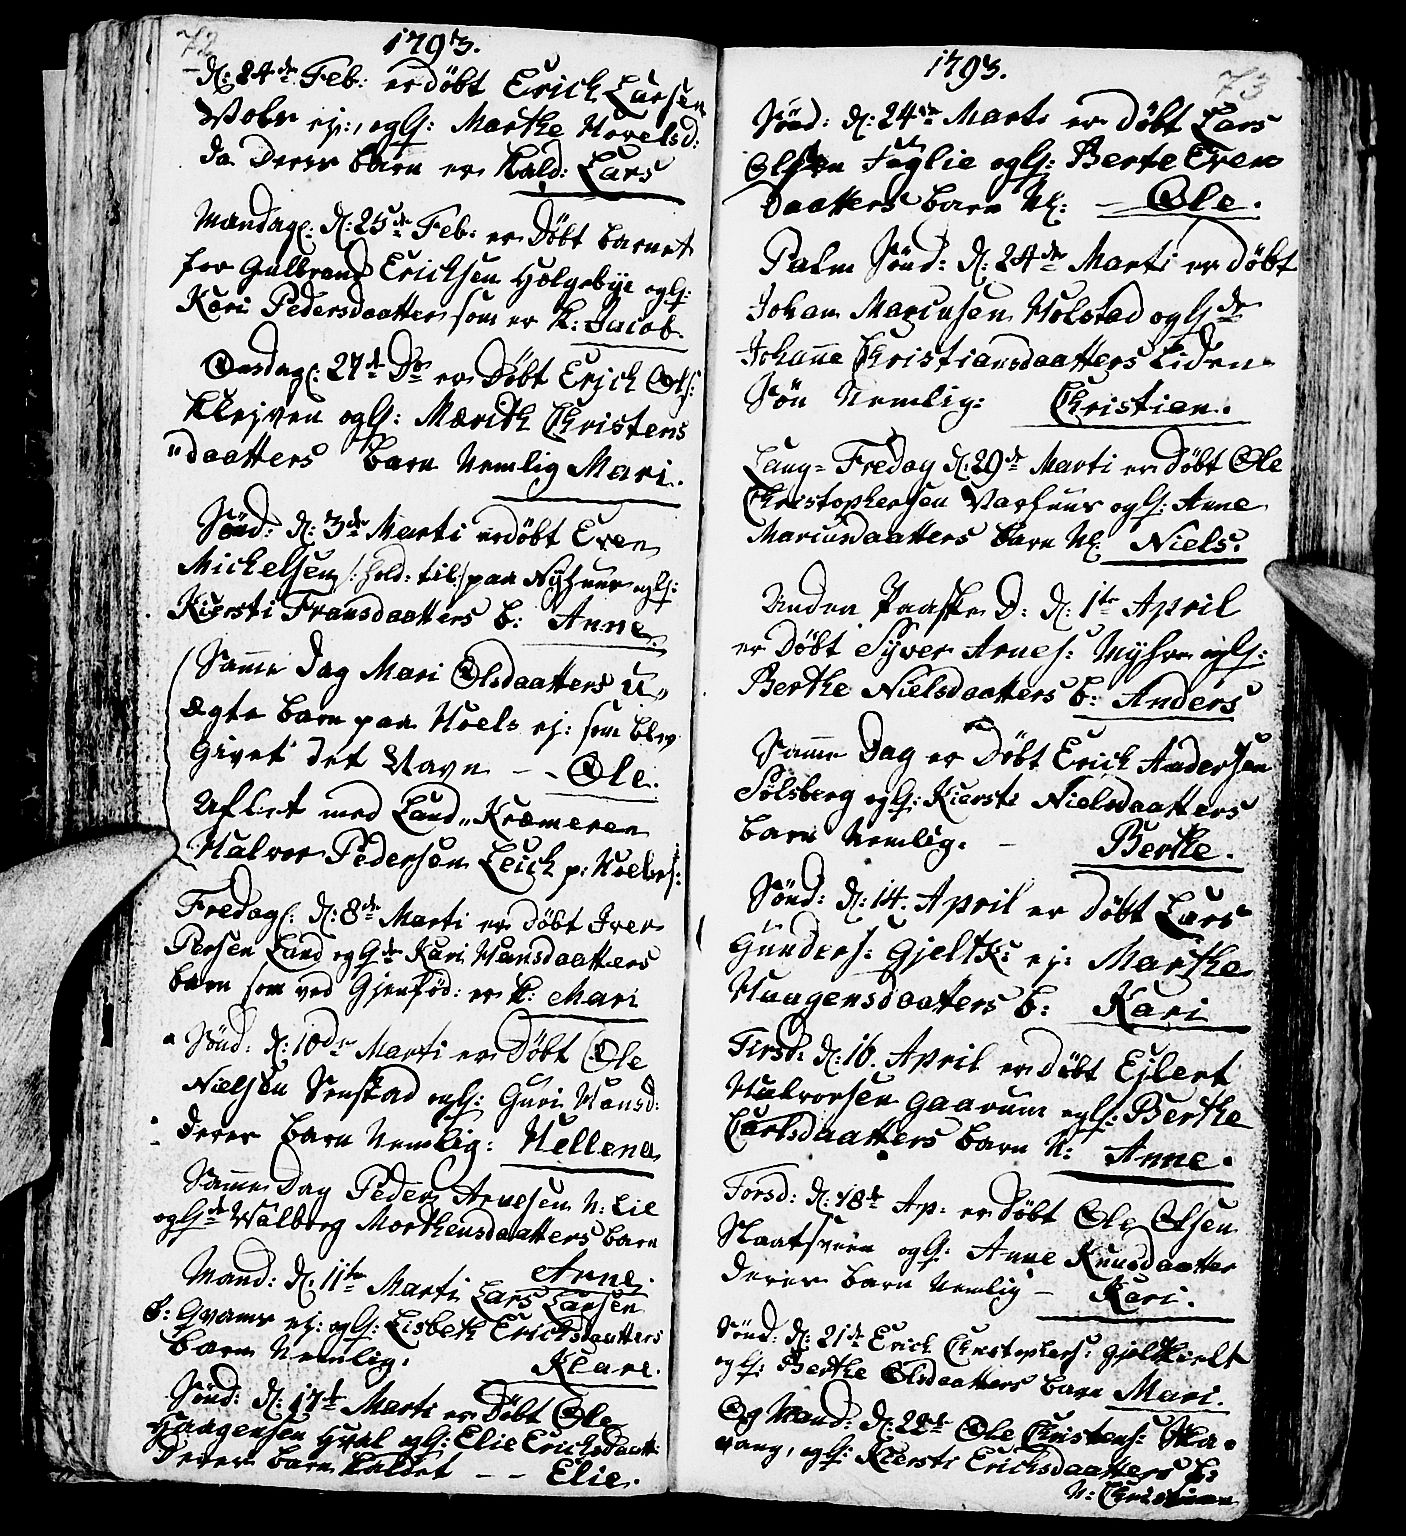 72
1793.
d: 24de Feb: er døbt Erich Larsen
Volv ej:, og G: Marthe Hovelsd:
da Derer barn er kald: Lars
Mandag: d: 25de Feb: er Døbt barnet
for Gulbrand Ericksen Holgebye og G:
Kari Pedersdaatter som er k: Jacob.
Onsdag: 27de Do er Døbt Erich Ols:
Klejven og G: Mærith Christens
"daatters barn Nemlig Mari.
Sønd: d: 3de Marti er døbt Even
Michelsen /: hold: til:/ paa Nyhuus og G:
Kiersti Fransdaatters b: Anne.
Samme Dag Mari Olsdaatters u"
ægte barn paa Hoels ej: som blev
Givet det Navn - - Ole.
Aflet med Land"Kræmeren
Halvor Pedersen Leich p:
Fredag: d: 8de Marti er døbt Iver
Persen Land og Gde Kari Hansdaatters
barn som ved Gjenfød: er k: Mari
Sønd: d: 10de Marti er Døbt Ole
Nielsen Senstad og G: Guri Hansd:
Derer barn Nemlig: Hellena
Samme Dag Peder Arnesen N: Lie
og Gde Walborg Morthensdaatters barn
Anne.
Mand: d: 11te Marti Lars Larsen
S: Gvams ej: og G: Lisbeth Ericksdaatters
barn Nemlig: Klare.
Sønd: d: 17de Marti er Døbt Ole
Haagensen Hval og G: Elie Ericksdaatt:
Derer barn kaldet - - Elie.
1793.
73
Sønd: d: 24de Marti er døbt Lars
Olsen Fuglie og G: Berte Even
Daatters barn N: - Ole.
Palm Sønd: d: 24de Marti er døbt
Johan Mariusen Holstad og Gde
Johanne Christiansdaatters Liden
Søn Nemlig: Christian.
Lang=Fredag d: 29de Marti er Døbt Ole
Christophersen og G: Anne
Mariusdaatters barn N: Niels.
Anden Paaske D: d: 1te April
er døbt Syver Arnes: Myhre og G:
Berthe Nielsdaatters b: Anders
Samme Dag er Døbt Erich Andersen
Solsberg og G: Kiersti Nielsdaatters
barn Nemlig. - Berthe.
Sønd: d: 14. April er døbt Lars
Gunders: Gjeltk: ej: Marthe
Haagensdaatters b: Kari
Tirsd: d: 16. April er døbt Ejlert
Halvorsen Gaarum og G: Berthe
Carlsdaatters barn N: Anne.
Torsd: d: 18de Ap: er Døbt Ole Olsen
Staatsveen og G: Anne Knusdaatter
Derer barn Nemlig - Kari.
Sønd: d: 21de Erick Christophers: Gjeltkielt
og G: Berthe Olsdaatters barn Mari.
Og Mand: d: 22de Ole Christens: Ska-
vang, og G: Kiersti Ericksdaatters b:
N: